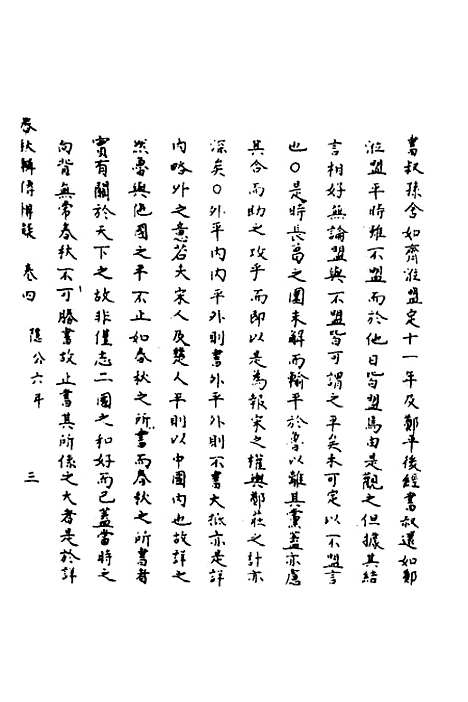 書叔孫舍如齊涖盟定十一年及鄭平後經書叔還如鄭
涖盟平時雖不盟而於他日皆盟焉由是觀之但據其結
言相好無論盟與不盟皆可謂之平矣未可定以不盟言
也○是時長葛之圍未解而輸平於魯以離其黨蓋亦慮
其合而助之攻乎而即以是為報宋之權與鄭莊之計亦
深矣○外平内内平外則書外平外則不書大抵亦是詳
内略外之意若夫宋人及楚人平則以中國内也故詳之
然魯與他國之平不止如春秋之所書而春秋之所書者
實有關於天下之故非僅志二國之和好而已蓋當時之
向背無常春秋不可勝書故止書其所係之大者是於詳
春秋輯傳辨疑 卷四 隱公六年 三